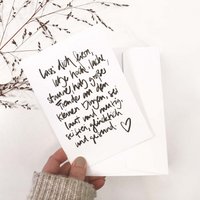 Lass dich feiern,
lebe hoch, lache,
staune, hab große
Freude an den
kleinen Dingen, sei
laut und mutig,
sei frei, glücklich
und gesund.